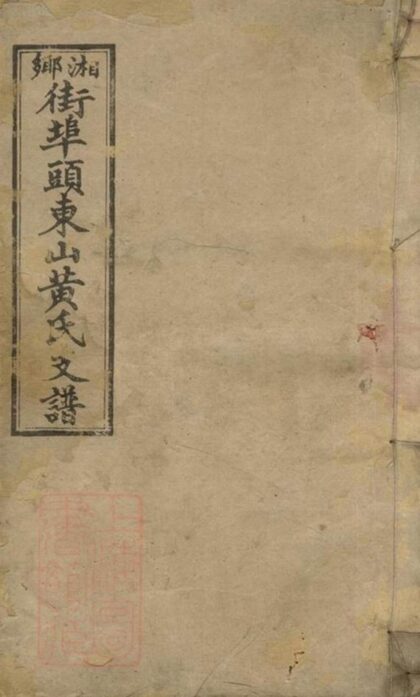 湘鄉
街埠頭東山黃氏支譜